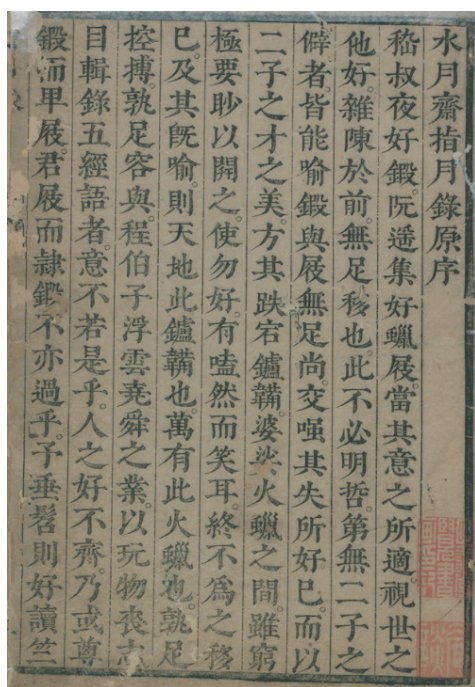 水月齋指月錄原序
嵇叔夜好鍛。阮遥集好蠟屐。當其意之所適。視世之
他好。雜陳於前。無足移也。此不必明哲。第無二子之
僻者。皆能喻鍛與屐無足尚。交嘆其失所好巳。而以
二子之才之美。方其跌宕鑪鞴。婆娑火蠟之間。雖窮
極要眇以開之。使勿好。有嗑然而笑耳。終不爲之移
巳。及其旣喻。則天地此鑪鞴也。萬有此火蠟也。孰足
控摶。孰足容與。程伯子浮雲堯舜之業。以玩物喪志
目輯錄五經語者。意不若是乎。人之好不齊。乃或尊
鍛而卑屐。君屐而隸鍛。不亦過乎。予垂髫則好讀竺